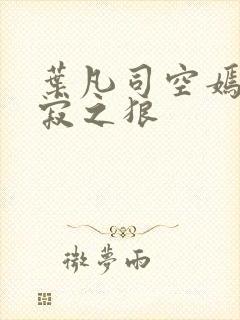 葉凡司空嫣
寂之狠
微夢雨